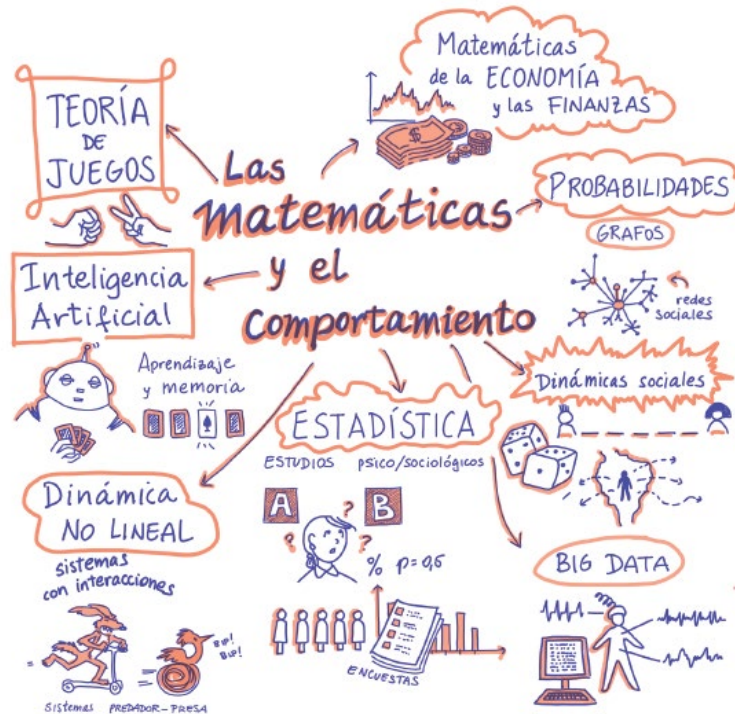 Las
Matemáticas
y el
Comportamiento
TEORÍA
DE
JUEGOS
Matemáticas
de la ECONOMÍA
y las FINANZAS
$
PROBABILIDADES
GRAFOS
redes
sociales
Inteligencia
Artificial
Aprendizaje
y memoria
Dinámicas sociales
ESTADÍSTICA
ESTUDIOS psico/sociológicos
A B
? ? ? ?
% p=0,6
ENCUESTAS
Dinámica
NO LINEAL
sistemas
con interacciones
=
BIP!
BIP!
Sistemas PREDADOR-PRESA
BIG DATA